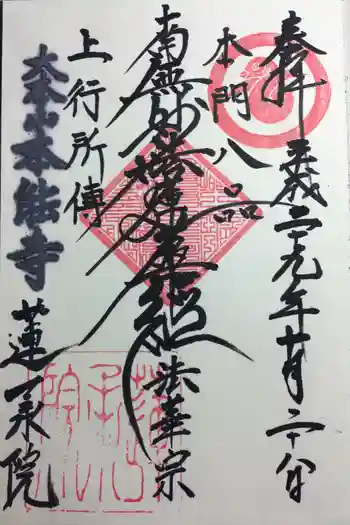 奉拝 平成二十九年十月二十八日
本門八品
南無妙法蓮華経 法華宗
上行所傳
大本山本能寺
蓮承院